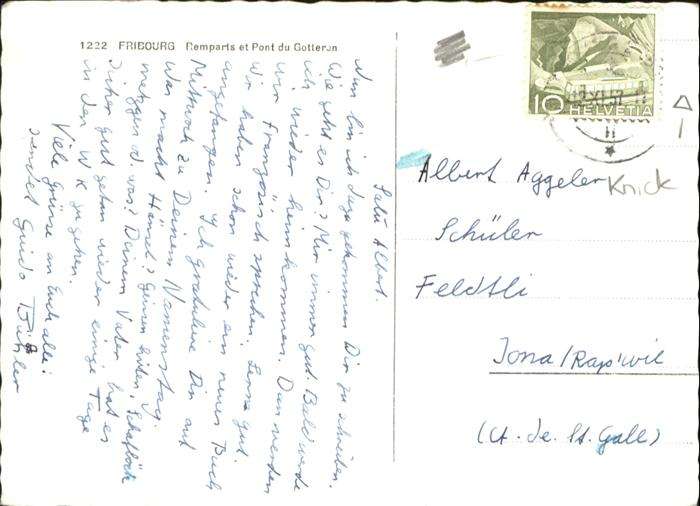 1222 FRIBOURG Remparts et Pont du Gotteron
Salü Albert.
Nun bin ich dazu gekommen Dir zu schreiben.
Wie geht es Dir? Mir immer gut. Bald werde
ich wieder heimkommen. Dann werden
wir Französisch sprechen. Lerne gut.
Wir haben schon wieder ein neues Buch
angefangen. Ich gratuliere Dir auf
Mittwoch zu Deinem Namenstag.
Was macht Hänsel? hüten, Schafböck
metzgen od. was? Deinem Vater hat es
sicher gut getan wieder einige Tage
in den W.K. zu gehen.
Viele Grüsse an Euch alle!
sendet Guido
10 HELVETIA
Albert Aggeler
Knick
Schüler
Feldtli
Jona/Rap'wil
(Ct. de St. Gall)